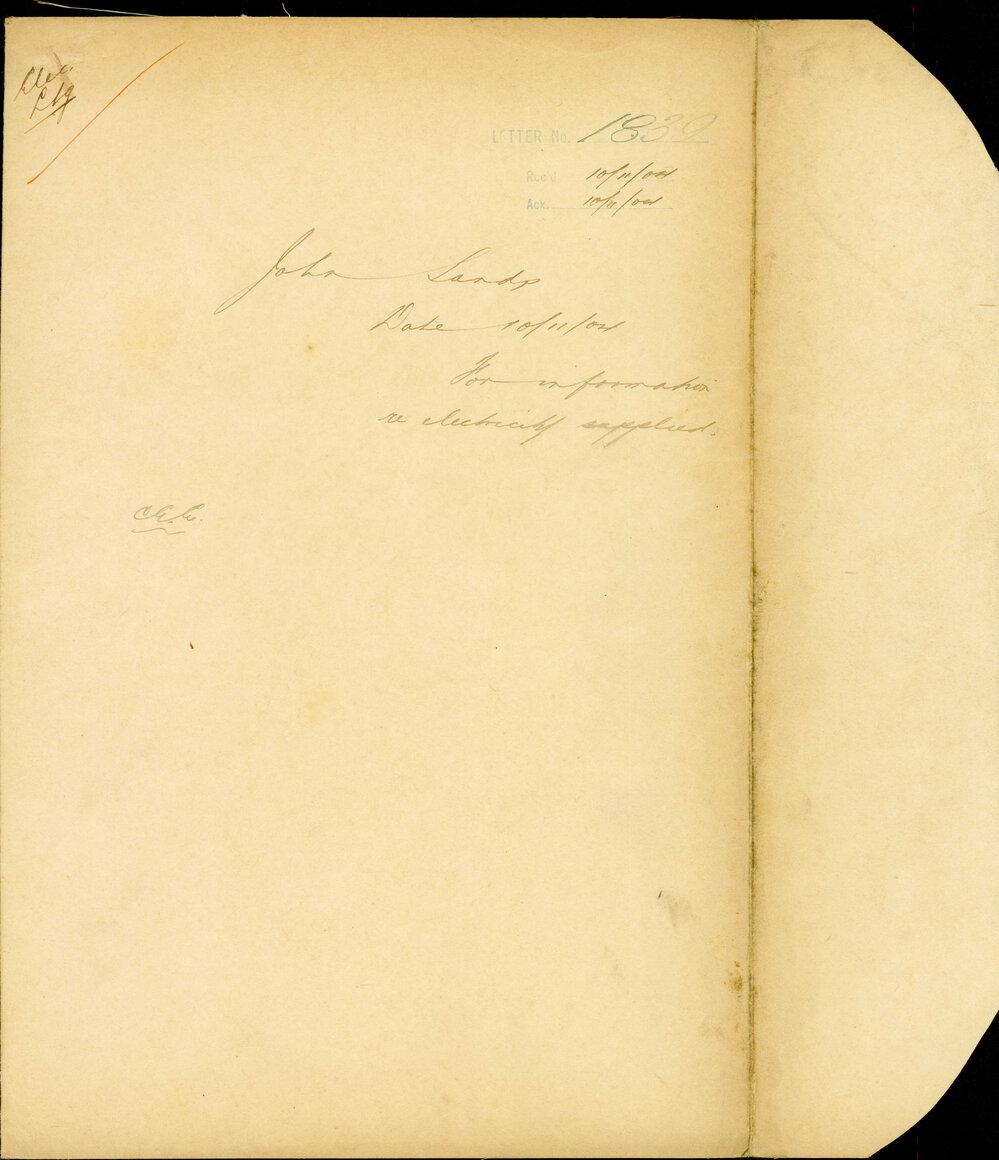 Elec
Ltg
LETTER No. 1839
Rec'd 10/11/04
Ack. 10/11/04
John Sands
Date 10/11/04
For information
re electricity supplied.